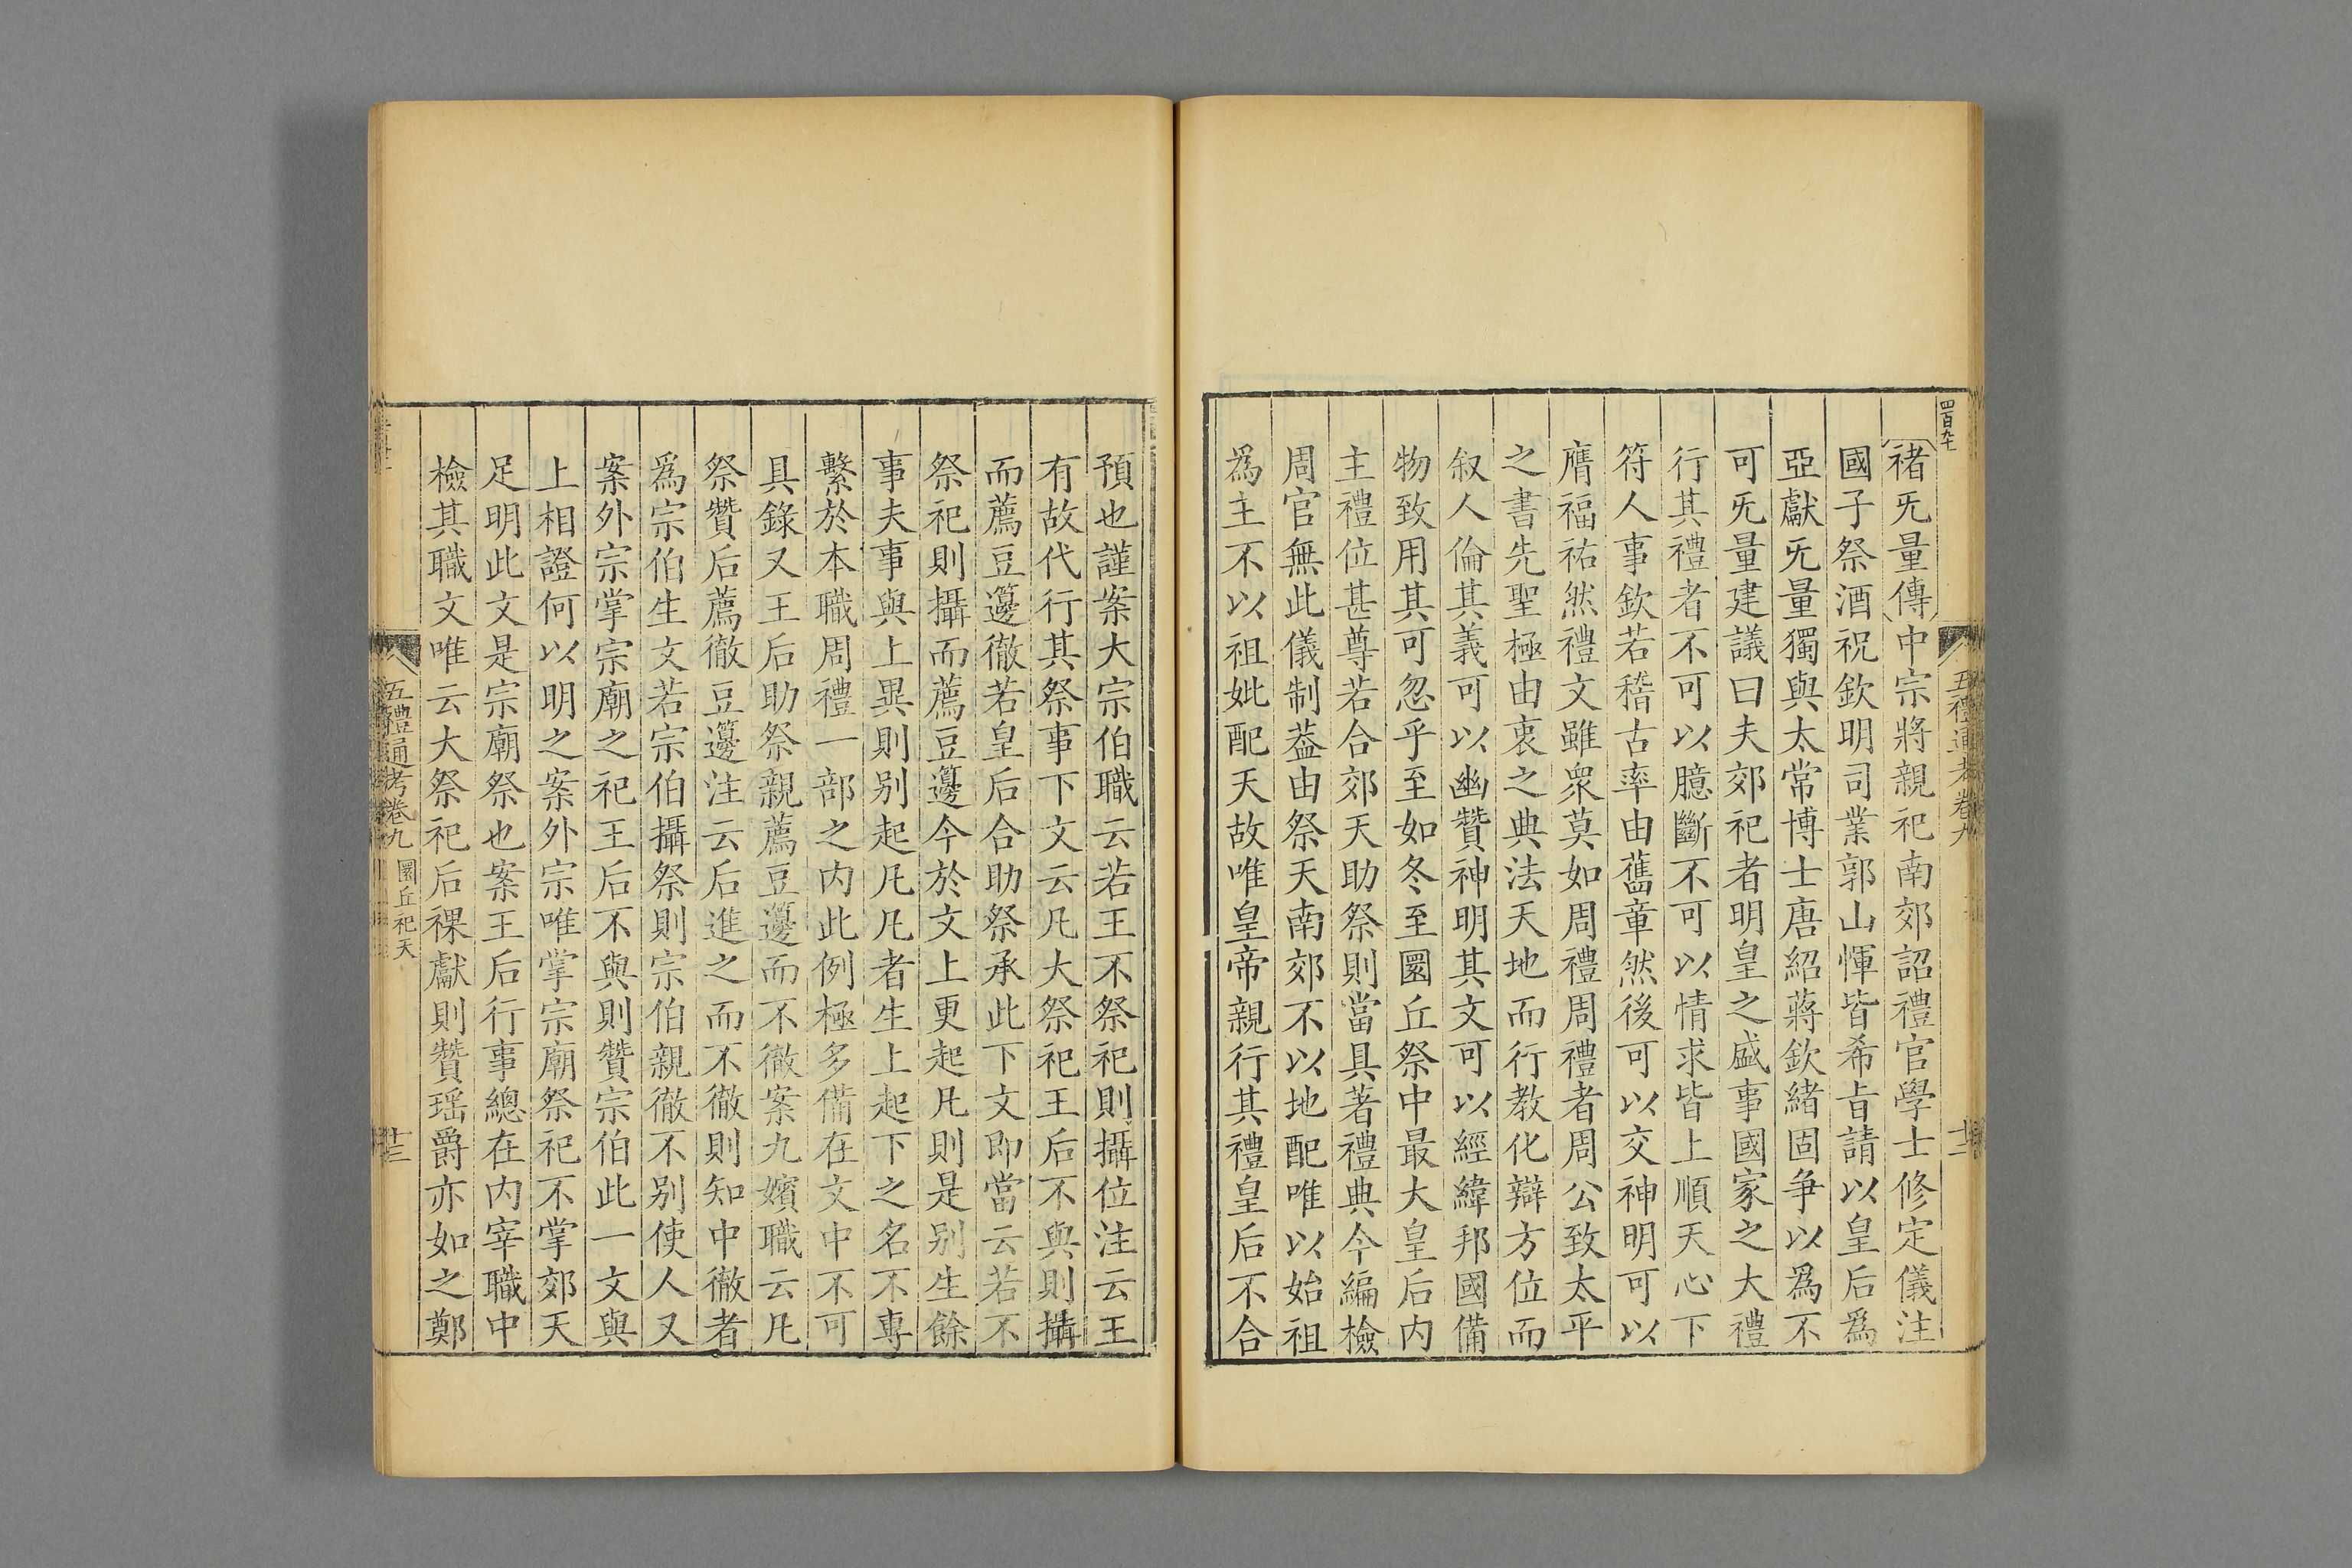 四百九十
五禮通考卷九
十二
褚旡量傳中宗將親祀南郊詔禮官學士修定儀注
國子祭酒祝欽明司業郭山惲皆希旨請以皇后爲
亞獻旡量獨與太常博士唐紹蔣欽緖固爭以爲不
可旡量建議曰夫郊祀者明皇之盛事國家之大禮
行其禮者不可以臆斷不可以情求皆上順天心下
符人事欽若稽古率由舊章然後可以交神明可以
膺福祐然禮文雖衆莫如周禮周禮者周公致太平
之書先聖極由衷之典法天地而行教化辯方位而
叙人倫其義可以幽贊神明其文可以經緯邦國備
物致用其可忽乎至如冬至圜丘祭中最大皇后內
主禮位甚尊若合郊天助祭則當具著禮典今編檢
周官無此儀制葢由祭天南郊不以地配唯以始祖
爲主不以祖妣配天故唯皇帝親行其禮皇后不合
預也謹案大宗伯職云若王不祭祀則攝位注云王
有故代行其祭事下文云凡大祭祀王后不與則攝
而薦豆籩徹若皇后合助祭承此下文即當云若不
祭祀則攝而薦豆籩今於文上更起凡則是别生餘
事夫事與上異則别起凡凡者生上起下之名不專
繫於本職周禮一部之內此例極多備在文中不可
具錄又王后助祭親薦豆籩而不徹案九嬪職云凡
祭贊后薦徹豆籩注云后進之而不徹則知中徹者
爲宗伯生文若宗伯攝祭則宗伯親徹不别使人又
案外宗掌宗廟之祀王后不與則贊宗伯此一文與
上相證何以明之案外宗唯掌宗廟祭祀不掌郊天
足明此文是宗廟祭也案王后行事總在內宰職中
檢其職文唯云大祭祀后祼獻則贊瑶爵亦如之鄭
五禮通考卷九 圜丘祀天
十三